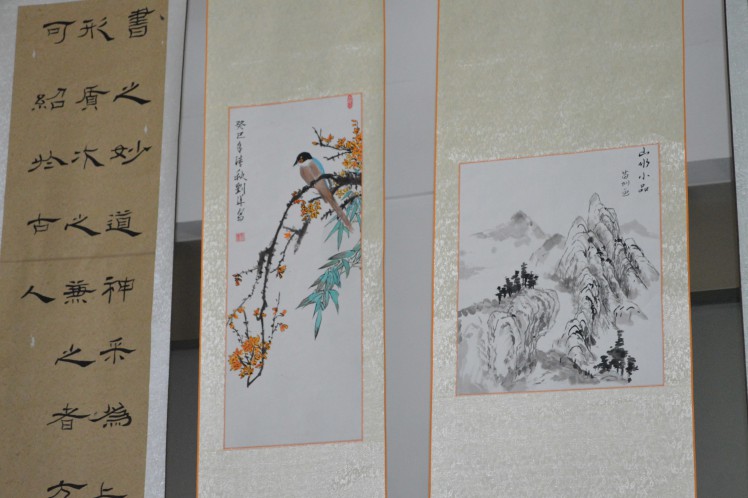 書之妙道神采為上
形質次之兼之者方
可紹於古人
癸巳年
秋劉
山水小品